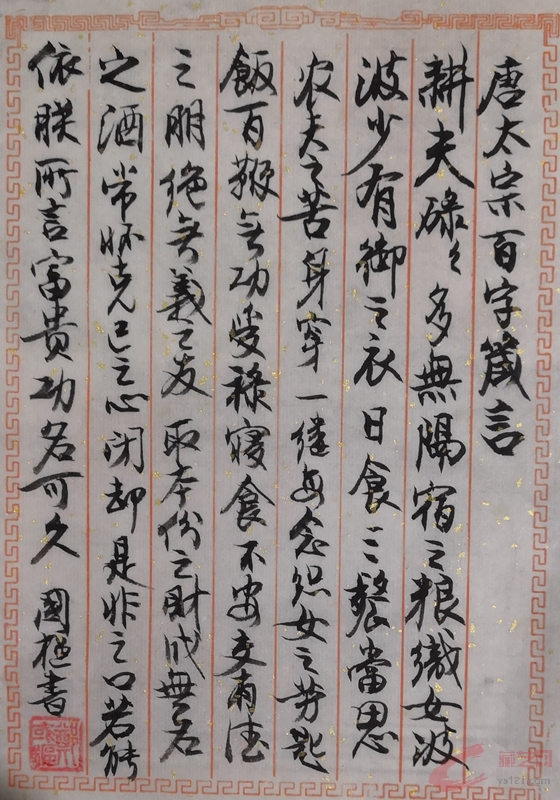 唐太宗百字箴言
耕夫碌々多無隔宿之粮織女波
波少有御之衣日食三餐當思
农夫之苦身穿一缕每念织女之劳匙
飯百鞭无功受禄寢食不安交有德
之朋绝无義之友取本份之財戒無名
之酒常怀克己之心闭却是非之口若能
依朕所言富贵功名可久 國植書